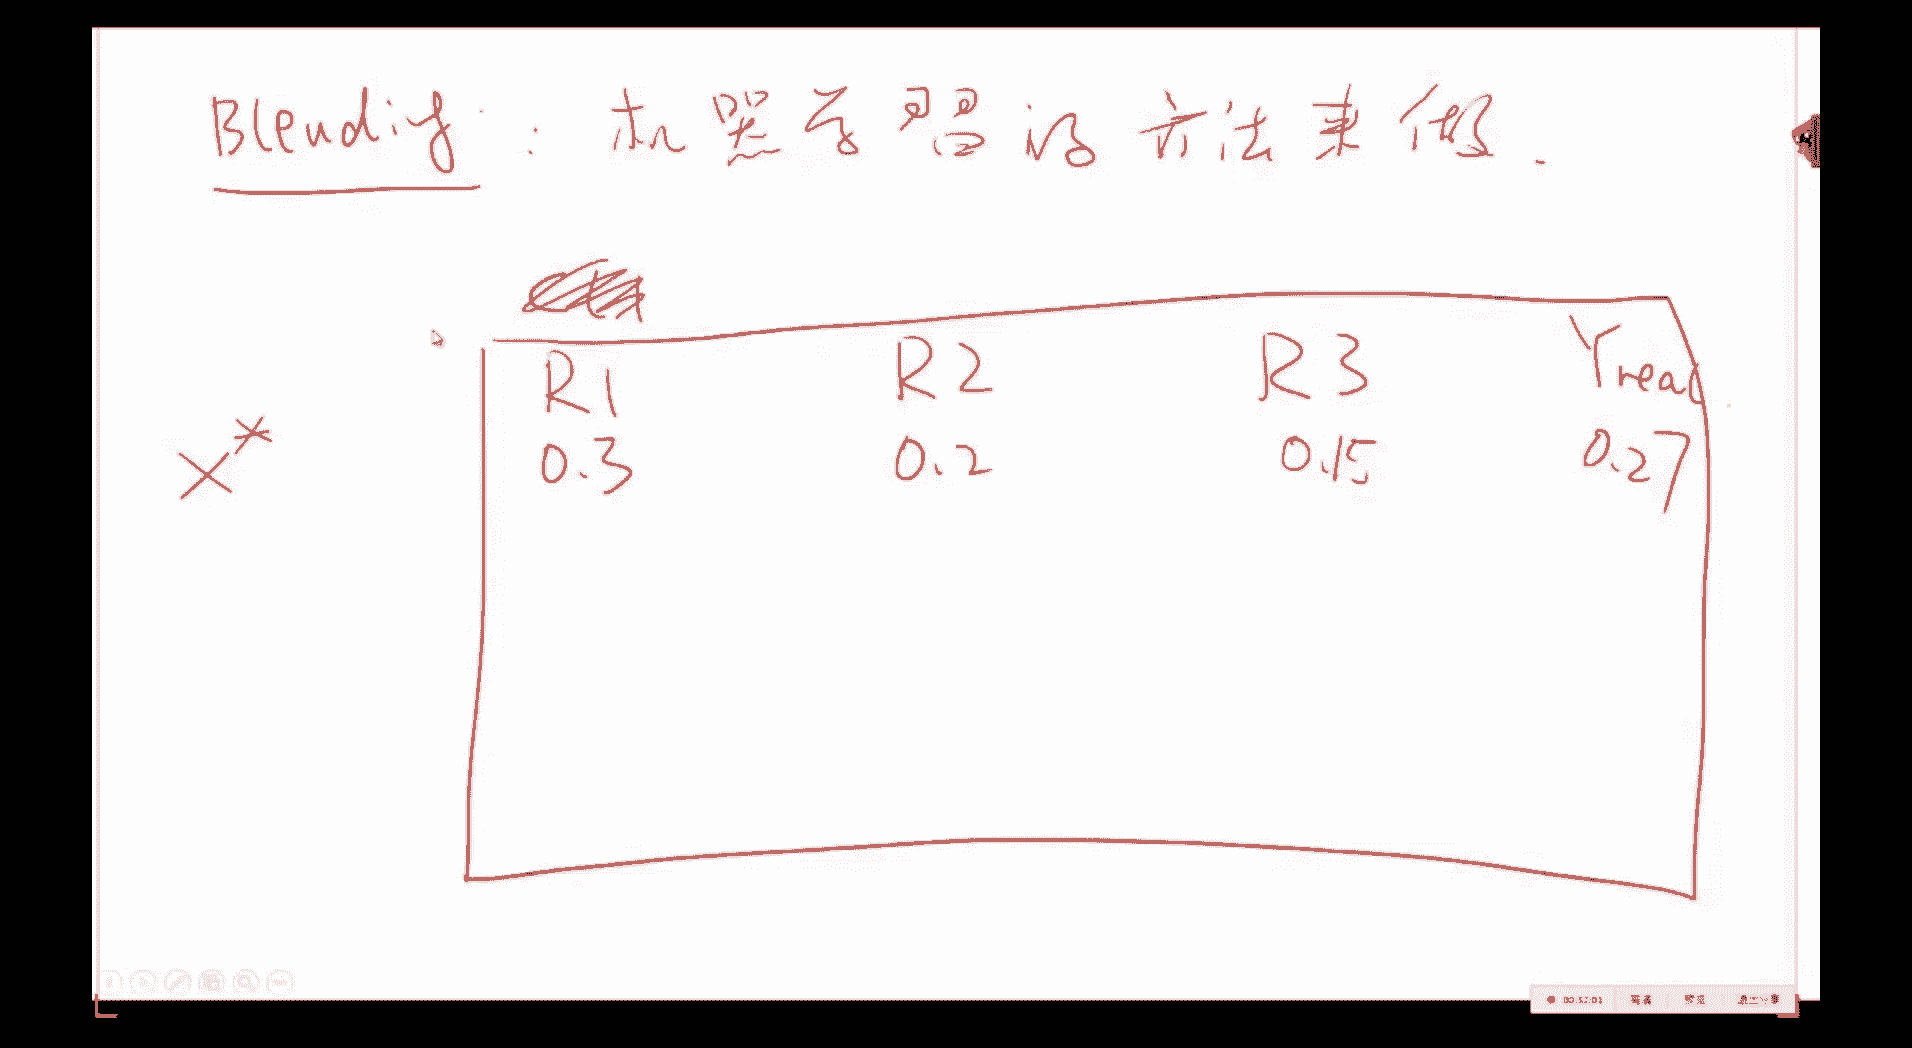 Blending：机器学习的方法来做.
R1 R2 R3 Yreal
X* 0.3 0.2 0.15 0.27